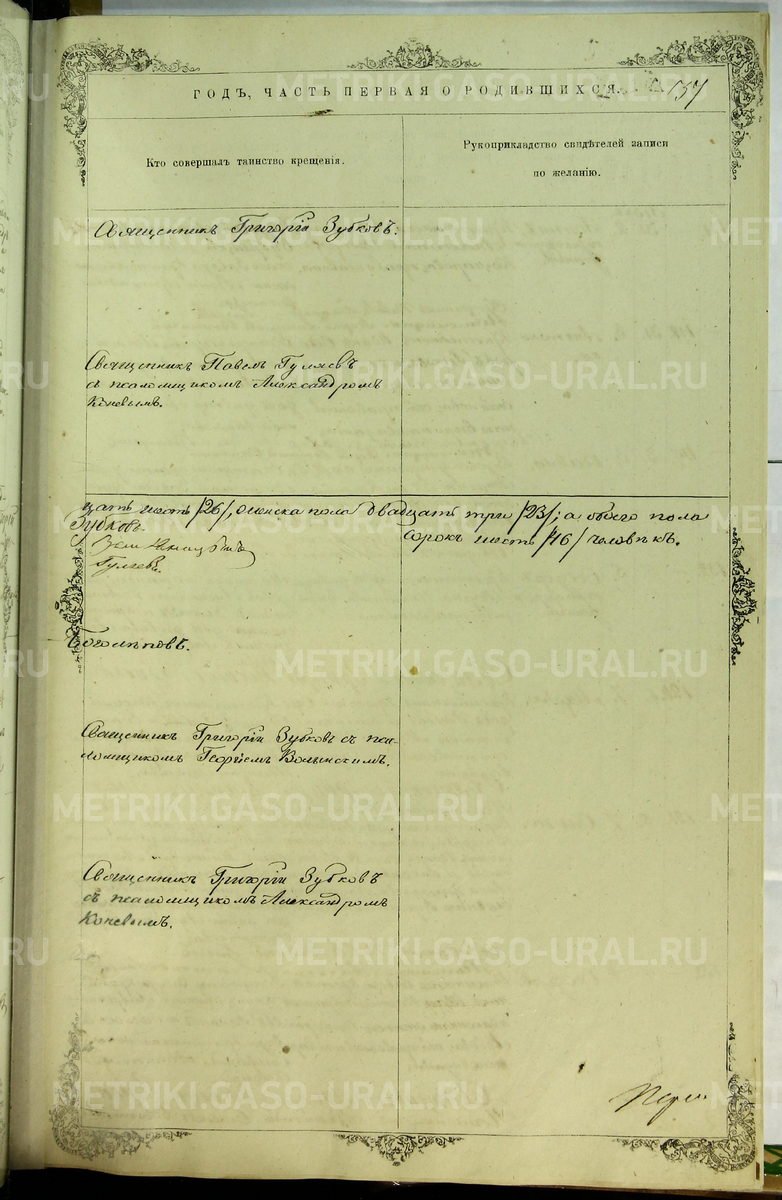 ГОДЪ, ЧАСТЬ ПЕРВАЯ О РОДИВШИХСЯ. 137
Кто совершалъ таинство крещенія.
Рукоприкладство свидѣтелей записи
по желанію.
Священникъ Григорій Зубковъ.
Священникъ Павелъ Гуляевъ
съ псаломщикомъ Александромъ
Коневымъ.
цать шесть /26/, женска пола двадцать три /23/; а обоего пола
сорокъ шесть /46/ человѣкъ.
Зубковъ.
Гуляевъ.
Боголѣповъ.
Священникъ Григорій Зубковъ съ пса-
ломщикомъ Георгіемъ Волынскимъ.
Священникъ Григорій Зубковъ
съ псаломщикомъ Александромъ
Коневымъ.
METRIKI.GASO-URAL.RU